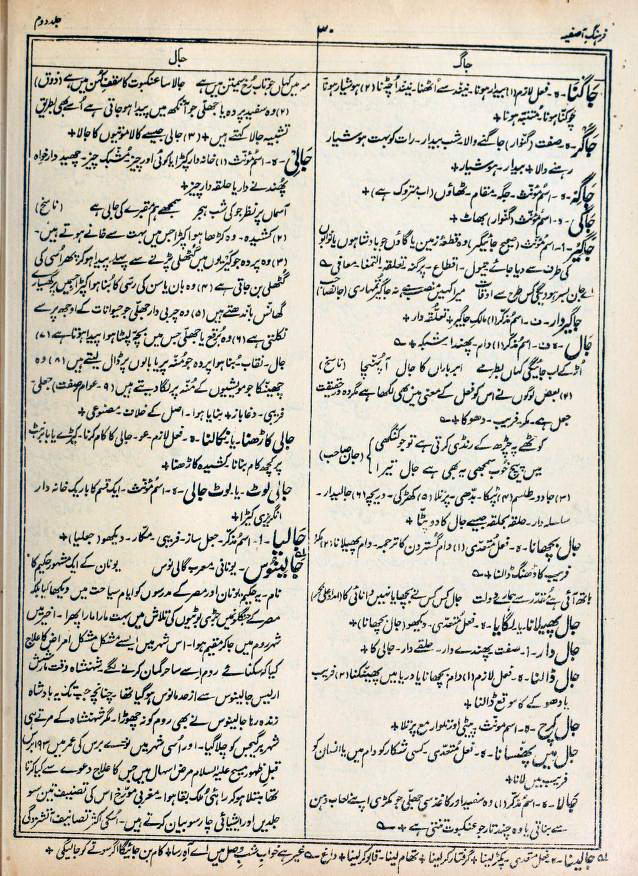 فرہنگ آصفیہ
۳۰
جلد دوم
جاگ
جال
جاگنا۔ ہ۔ فعل لازم (۱) بیدار ہونا۔ نیند سے اُٹھنا۔ نیند اُچٹنا (۲) ہوشیار ہونا
چوکنا ہونا۔ متنبہ ہونا +
جاگر۔ ہ۔ صفت (گنوار) جاگنے والا۔ شب بیدار۔ رات کو بہت ہوشیار
رہنے والا + بیدار۔ ہوشیار +
جاگہ۔ ہ۔ اسم مؤنث۔ جگہ۔ مقام۔ ٹھاؤں (اب متروک ہے) +
جاگی۔ ہ۔ اسم مؤنث (گنوار) بھاٹ +
جاگیر۔ ا۔ اسم مؤنث (صحیح جائیگیر) وہ قطعہ زمین یا گاؤں جو بادشاہوں یا نوابوں
کی طرف سے دیا جائے۔ اقطاع۔ پرگنہ۔ تعلقہ۔ التمغا۔ معافی ؎
جاگیردار۔ ف۔ اسم مذکر (۱) مالک جاگیر + تعلقہ دار +
جال۔ ہ۔ اسم مذکر (۱) دام۔ پھندا۔ شبکہ + ؎
اُڑ کے اب جائیگی کہاں بطِ مے ابر باراں کا جال آ پہنچا (ناسخ)
(۲) بعض لوگوں نے اس کو فعل کے معنی میں بھی لکھا ہے مگر وہ درحقیقت
جعل ہے۔ مکر۔ فریب۔ دھوکا + ؎
کوٹھے پہ چڑھ کے رنڈی کرتی ہے تو جو کنگھی
میں پیچ خوب سمجھی یہ بھی ہے جال تیرا
(جان صاحب)
(۳) جادو۔ طلسم (۴) پٹکا۔ بدھی۔ پرتلا (۵) کھڑکی۔ دریچہ (۶) جالیدار۔
سلسلہ دار۔ حلقہ بحلقہ جیسے جال کا دوپٹا +
جال بچھانا۔ ہ۔ فعل متعدی (۱) دام گستردن کا ترجمہ۔ دام پھیلانا (۲) مکر
فریب کا ڈھنگ ڈالنا + ؎
جال کس کس نے بچھایا نہیں دانائی کا
جال پھیلانا۔ یا۔ لگانا۔ ہ۔ فعل متعدی۔ دیکھو (جال بچھانا) +
جال دار۔ ا۔ صفت۔ پھندے دار۔ حلقے دار۔ جالی کا +
جال ڈالنا۔ ہ۔ فعل لازم (۱) دام بچھانا یا دریا میں پھینکنا (۲) فریب
یا دھوکے کا موقع ڈالنا +
جال کرچ۔ ہ۔ اسم مؤنث۔ پیٹی اور تلوار مع پرتلا +
جال میں پھنسانا۔ ہ۔ فعل متعدی۔ کسی شکار کو دام میں یا انسان کو
فریب میں لانا +
جالا۔ ہ۔ اسم مذکر (۱) وہ سفید اور کاغذ سی جھلی جو مکڑی اپنے لعاب دہن
سے بناتی یا وہ چند تار جو عنکبوت تنتی ہے + ؎
جالا سا عنکبوت کا سقف کہن میں ہے (ذوق)
(۲) وہ سفید پردہ یا جھلی جو آنکھ میں پیدا ہو جاتی ہے اُسے بھی بطریق
تشبیہ جالا کہتے ہیں + (۳) جالی جیسے کالا موتیوں کا جالا +
جالی۔ ہ۔ اسم مؤنث (۱) خانہ دار کپڑا یا کوئی اور چیز۔ مشبک چیز۔ چھید دار خواہ
پھندنے دار یا حلقہ دار چیز +
آسماں پر نظر جو کی شب ہجر سمجھے ہم مقبرے کی جالی ہے (ناسخ)
(۲) کشیدہ۔ وہ کاڑھا ہوا کپڑا جس میں بہت سے خانے ہوتے ہیں۔
(۳) وہ پردہ جو کیریوں میں گٹھلی پڑنے سے پہلے پیدا ہو کر پھر اُسی کی
گٹھلی بن جاتی ہے (۴) وہ بان یا سن کی رسی کا بنا ہوا کپڑا جس میں گھسیارے
گھانس باندھتے ہیں (۵) وہ چربی دار جھلی جو حیوانات کے اوجھ پر سے
نکلتی ہے (۶) وہ برقع یا جھلی جس میں بچہ لپٹا ہوا پیدا ہوتا ہے (۷)
جال۔ نقاب۔ بُنا ہوا پردہ جو منہ پر یا بالوں پر ڈال لیتے ہیں (۸) وہ
چھینکا جو مویشیوں کے منہ پر لگا دیتے ہیں (۹۔ عوام۔ صفت) جعلی۔
فریبی۔ دغاباز + بنایا ہوا۔ اصل کے خلاف۔ مصنوعی +
جالی کاڑھنا۔ یا۔ نکالنا۔ ہ۔ فعل لازم۔ عو۔ جالی کا کام کرنا۔ کپڑے یا بانیٹ
پر کچھ کام بنانا۔ کشیدہ کاڑھنا +
جالی لوٹ۔ یا۔ لوٹ جالی۔ ہ۔ اسم مؤنث۔ ایک قسم کا باریک خانہ دار
انگریزی کپڑا +
جالیا۔ ا۔ اسم مذکر۔ جعل ساز۔ فریبی۔ مکار۔ دیکھو (جعلیا) +
جالینوس۔ یونانی۔ معرب گالی نوس یونان کے ایک مشہور حکیم کا
نام۔ یہ حکیم یونان اور مصر کے مدرسوں کو ایام سیاحت میں دیکھا کیا بلکہ
مصر کے جنگلوں میں جڑی بوٹیوں کی تلاش میں بہت مارا مارا پھرا۔ آخر میں
شہر روم میں جا کر مقیم ہوا۔ اس شہر میں ایسے مشکل مشکل امراض کا علاج
کیا کہ سکنائے روم اسے ساحر گمان کرنے لگے۔ شہنشاہ وقت مارکس
اریلیس جالینوس سے از حد مانوس ہو گیا تھا۔ چنانچہ جب تک یہ بادشاہ
زندہ رہا جالینوس نے بھی روم کو نہ چھوڑا۔ مگر شہنشاہ کے مرتے ہی
شہر پرگیمس کو چلا گیا۔ اور اُسی شہر میں نوے برس کی عمر میں ۱۹۳ برس
قبل ظہور مسیح علیہ السلام مرض اسہال میں جس کا علاج دعوے سے کیا کرتا
تھا مبتلا ہو کر راہی ملک بقا ہوا۔ مغربی مؤرخ اس کی تصنیفیں تین سو
جلدیں اور ایشیائی چار سو بیان کرتے ہیں۔ اسکی اکثر تصانیف آتشزدگی
جا لینا۔ ہ۔ فعل متعدی۔ پکڑ لینا + گرفتار کر لینا + تھام لینا۔ قابو کر لینا + داغ ؎ غیر ہے خواب شب وصل میں اے آہ رسا + کام بن جائیگا گر سوتے کو جا لیگی +